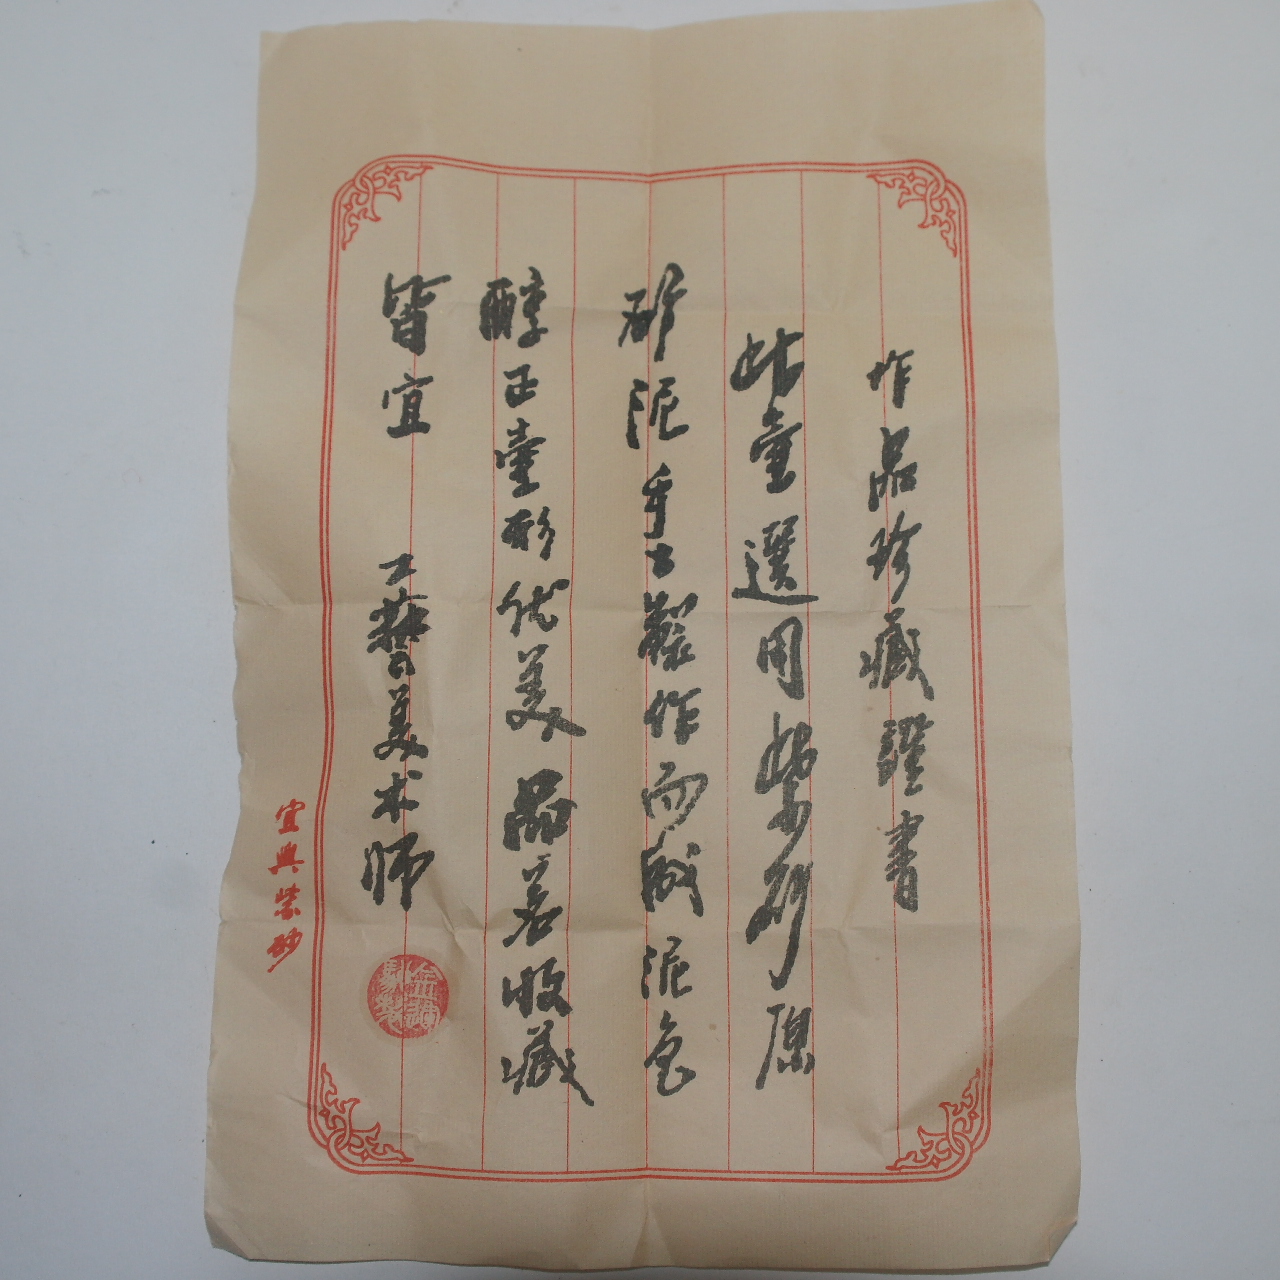 作品珍藏證書
此壷選用紫砂原
矿泥手工製作而成泥色
醇正壷形优美 品茗收藏
皆宜 工藝美术师
宜興紫砂